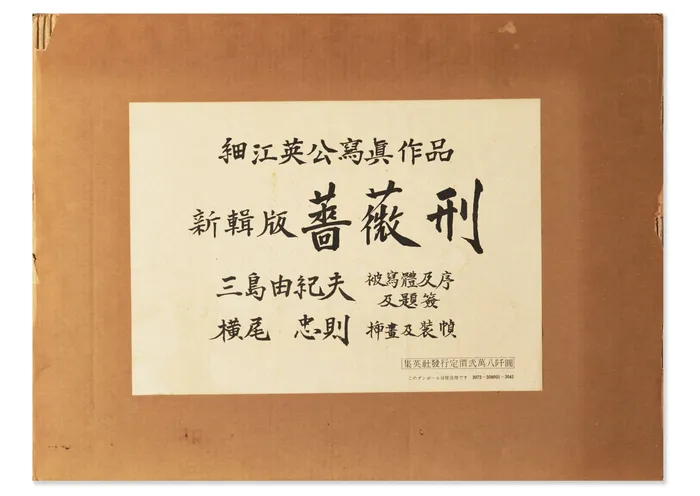 細江英公寫眞作品
新輯版 薔薇刑
三島由紀夫 被寫體及序
及題簽
橫尾 忠則 揷畫及装幀
集英社發行定價弐萬八阡圓
このダンボールは輸送用です 3072-208001-3041